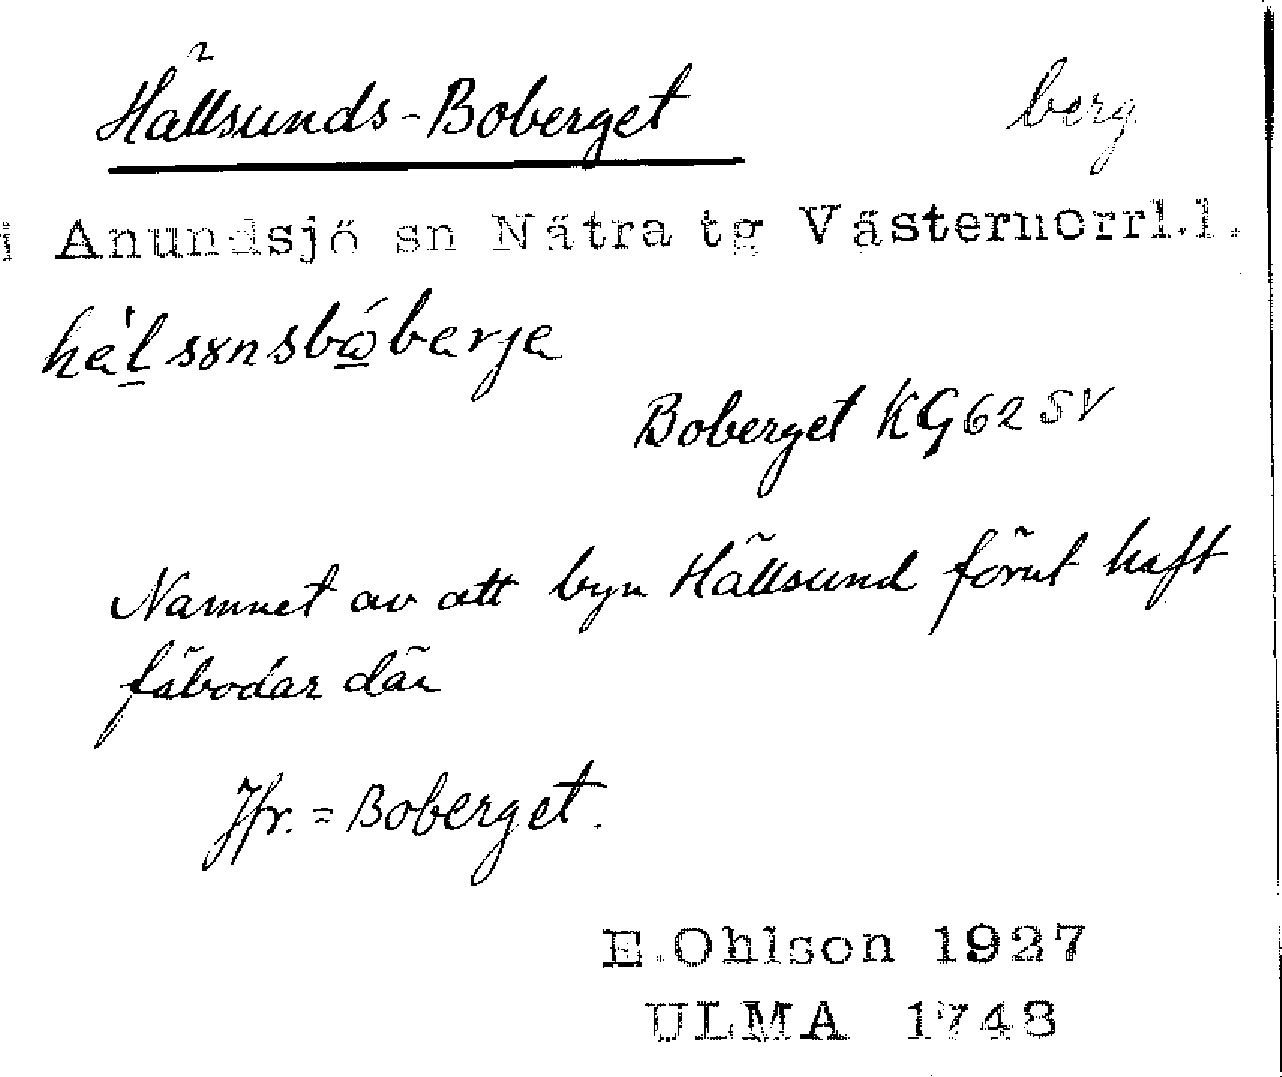 Hällsunds-Boberget berg
i Anundsjö sn Nätra tg Västernorrl.l.
Boberget KG62 SV
Namnet av att byn Hällsund förut haft
fäbodar där
Jfr. = Boberget.
E.Ohlson 1927
ULMA 1748